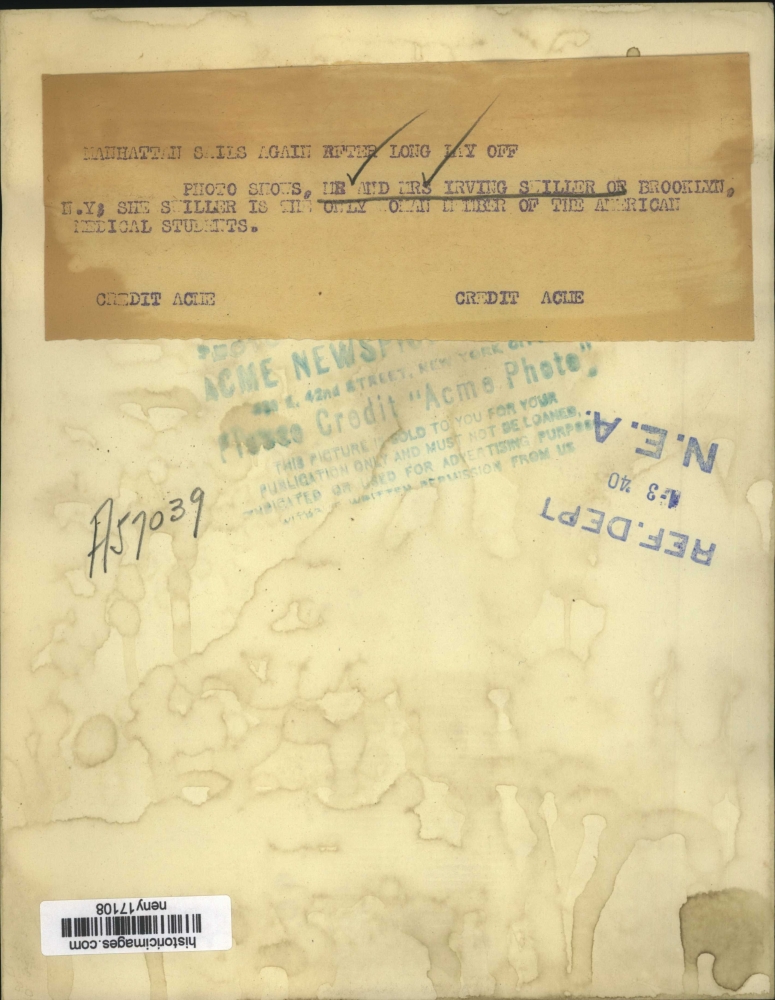 MANHATTAN SAILS AGAIN AFTER LONG LAY OFF
PHOTO SHOWS, MR AND MRS IRVING SHILLER OF BROOKLYN,
N.Y; SHE SHILLER IS THE ONLY WOMAN MEMBER OF THE AMERICAN
MEDICAL STUDENTS.
CREDIT ACME CREDIT ACME
ACME
42nd STREET, NEW YORK
Please Credit "Acme Photo"
THIS PICTURE IS SOLD TO YOU FOR YOUR
PUBLICATION ONLY AND MUST NOT BE LOANED,
OR USED FOR ADVERTISING PURPOSES
WRITTEN PERMISSION FROM US
N.E.A.
3 '40
REF. DEPT
A57039
historicimages.com
neny17108